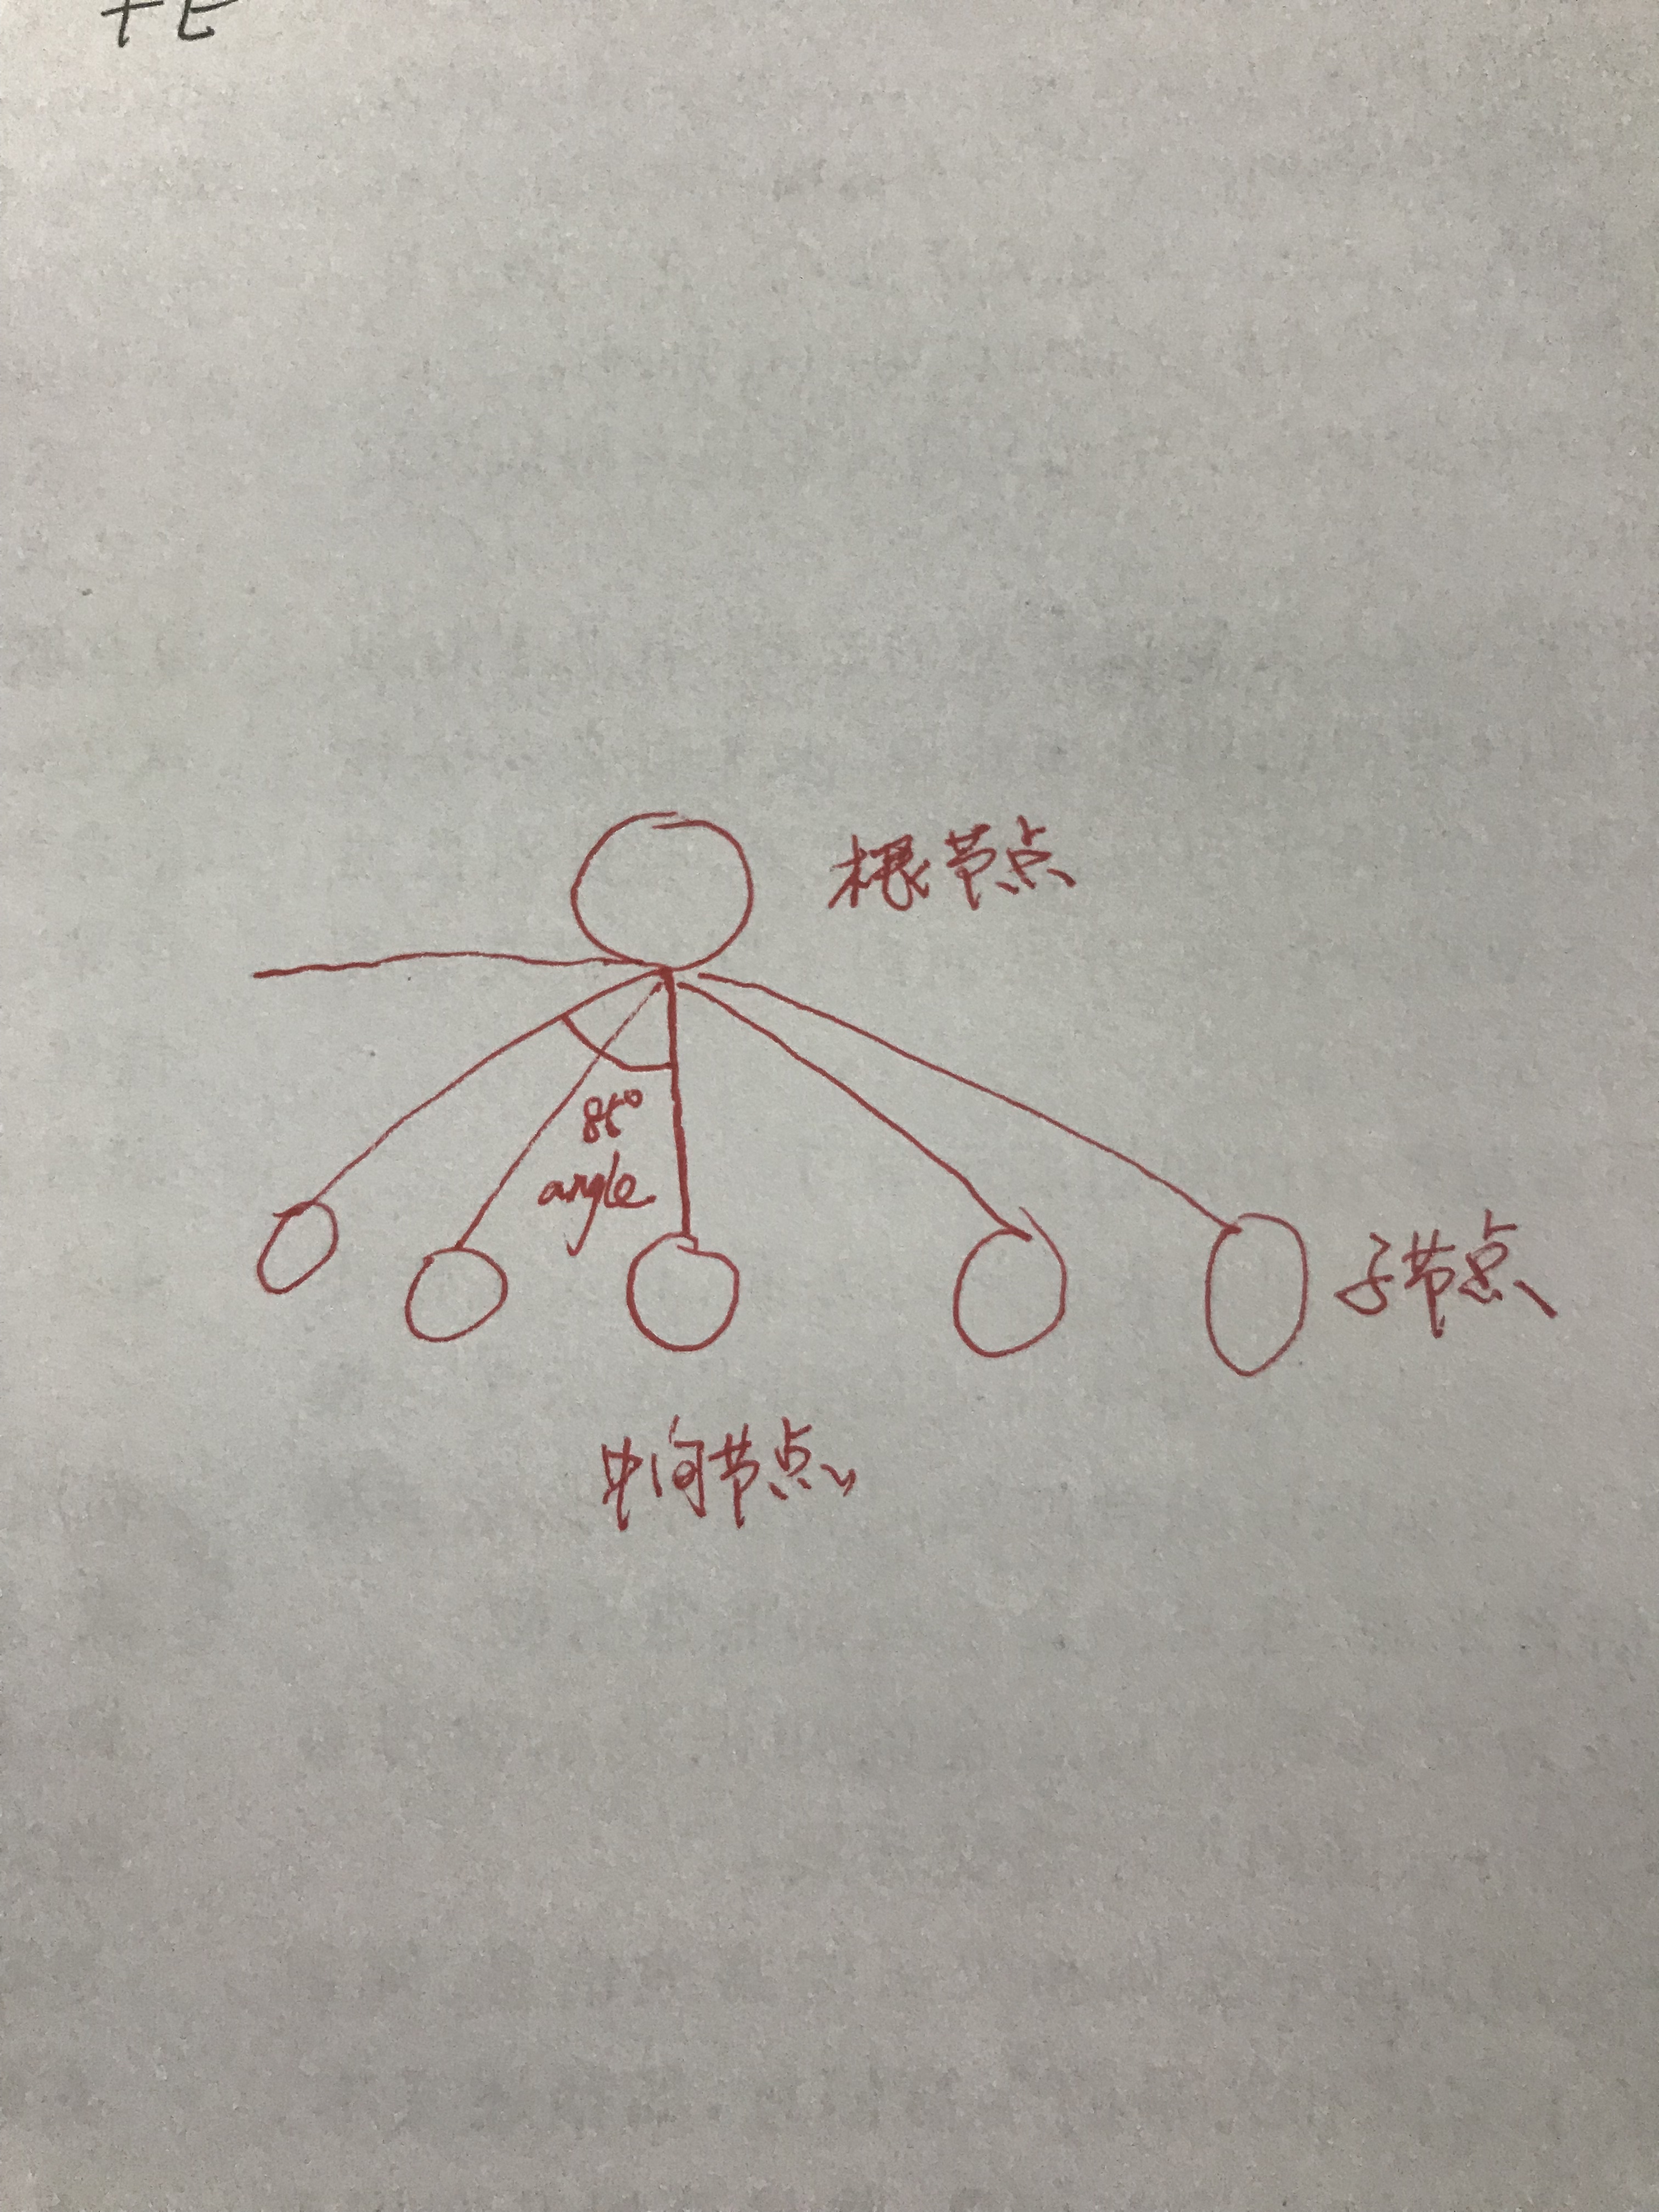 根节点
85°
angle
子节点
中间节点